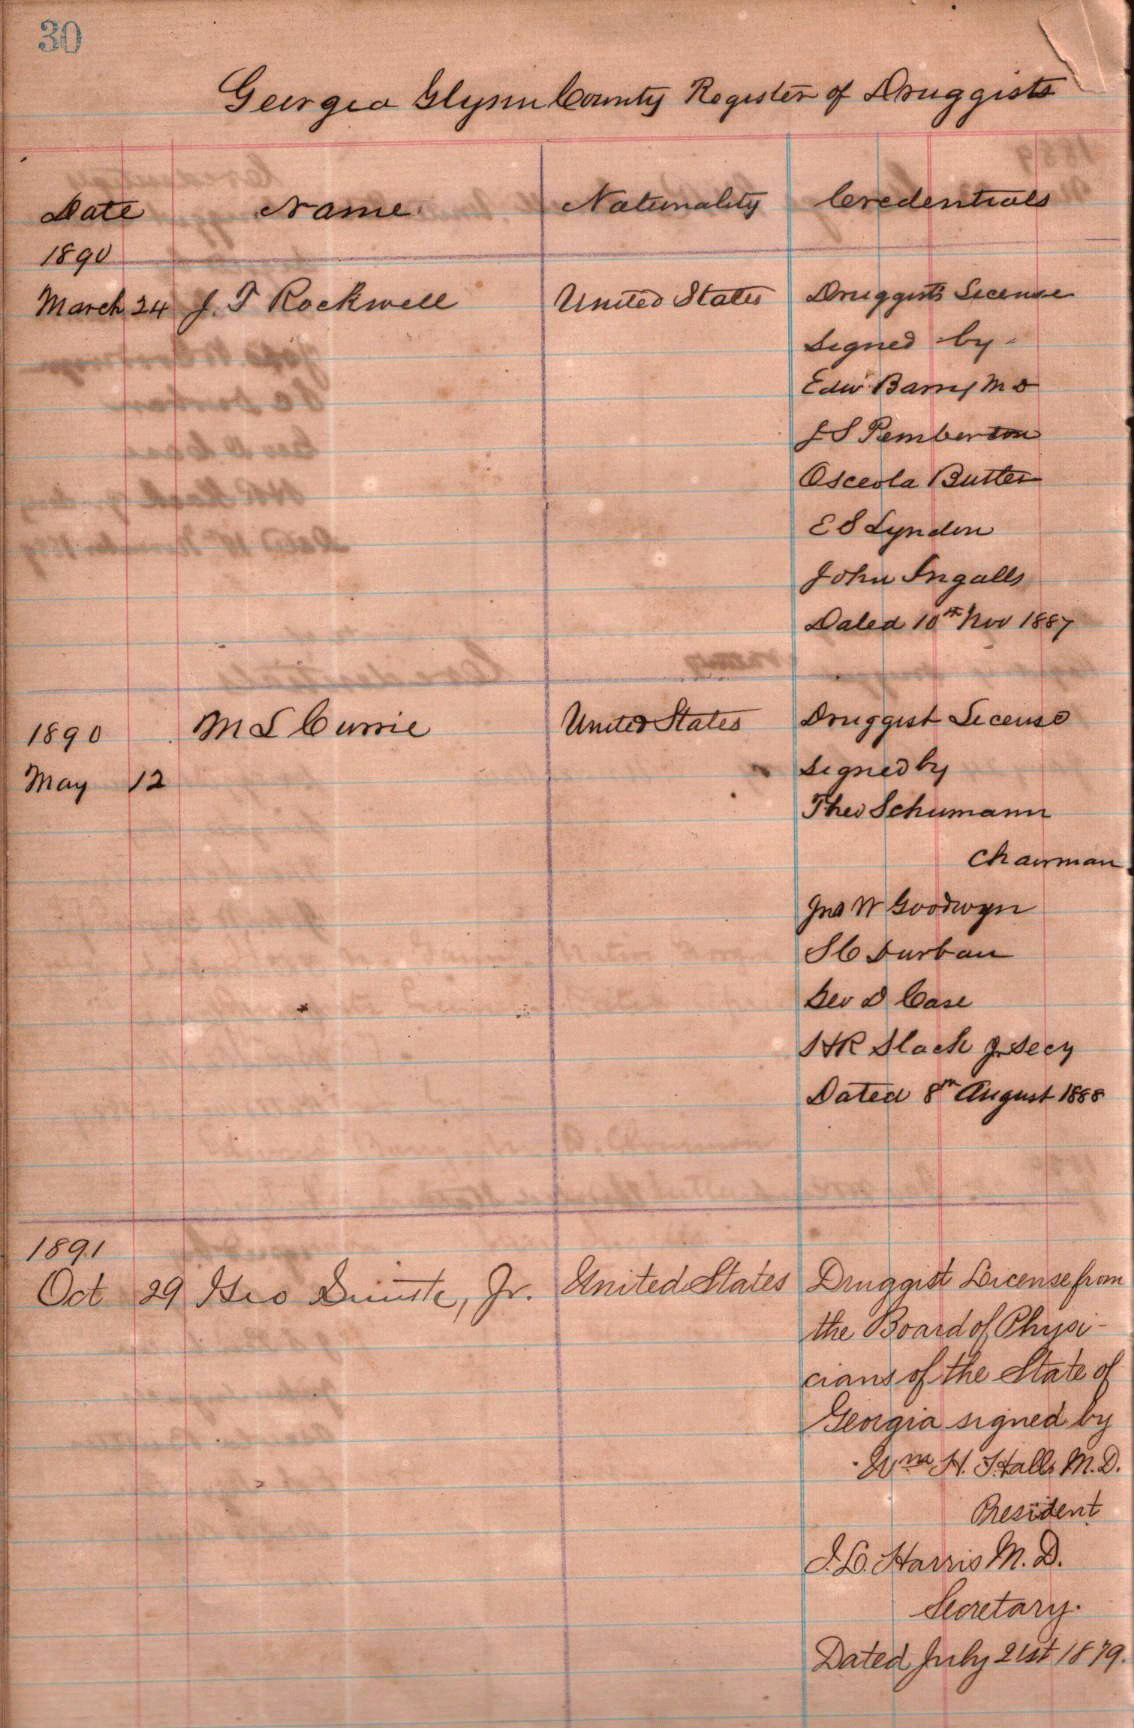 30
Georgia Glynn County Register of Druggists
Date Name Nationality Credentials
1890
March 24 J. T Rockwell United States Druggists License
Signed by
Edw Barry M D
J S Pemberton
Osceola Butler
E S Lyndon
John Ingalls
Dated 10th Nov 1887
1890 M L Currie United States Druggist License
May 12 signed by
Theo Schumann
Chairman
Jno W Goodwyn
S C Durban
Geo D Case
H R Slack Jr Secy
Dated 8th August 1888
1891
Oct 29 Geo Jr. United States Druggist License from
the Board of Physi-
cians of the State of
Georgia signed by
Wm H. Hall M.D.
President
I. L. Harris M.D.
Secretary.
Dated July 21st 1879.